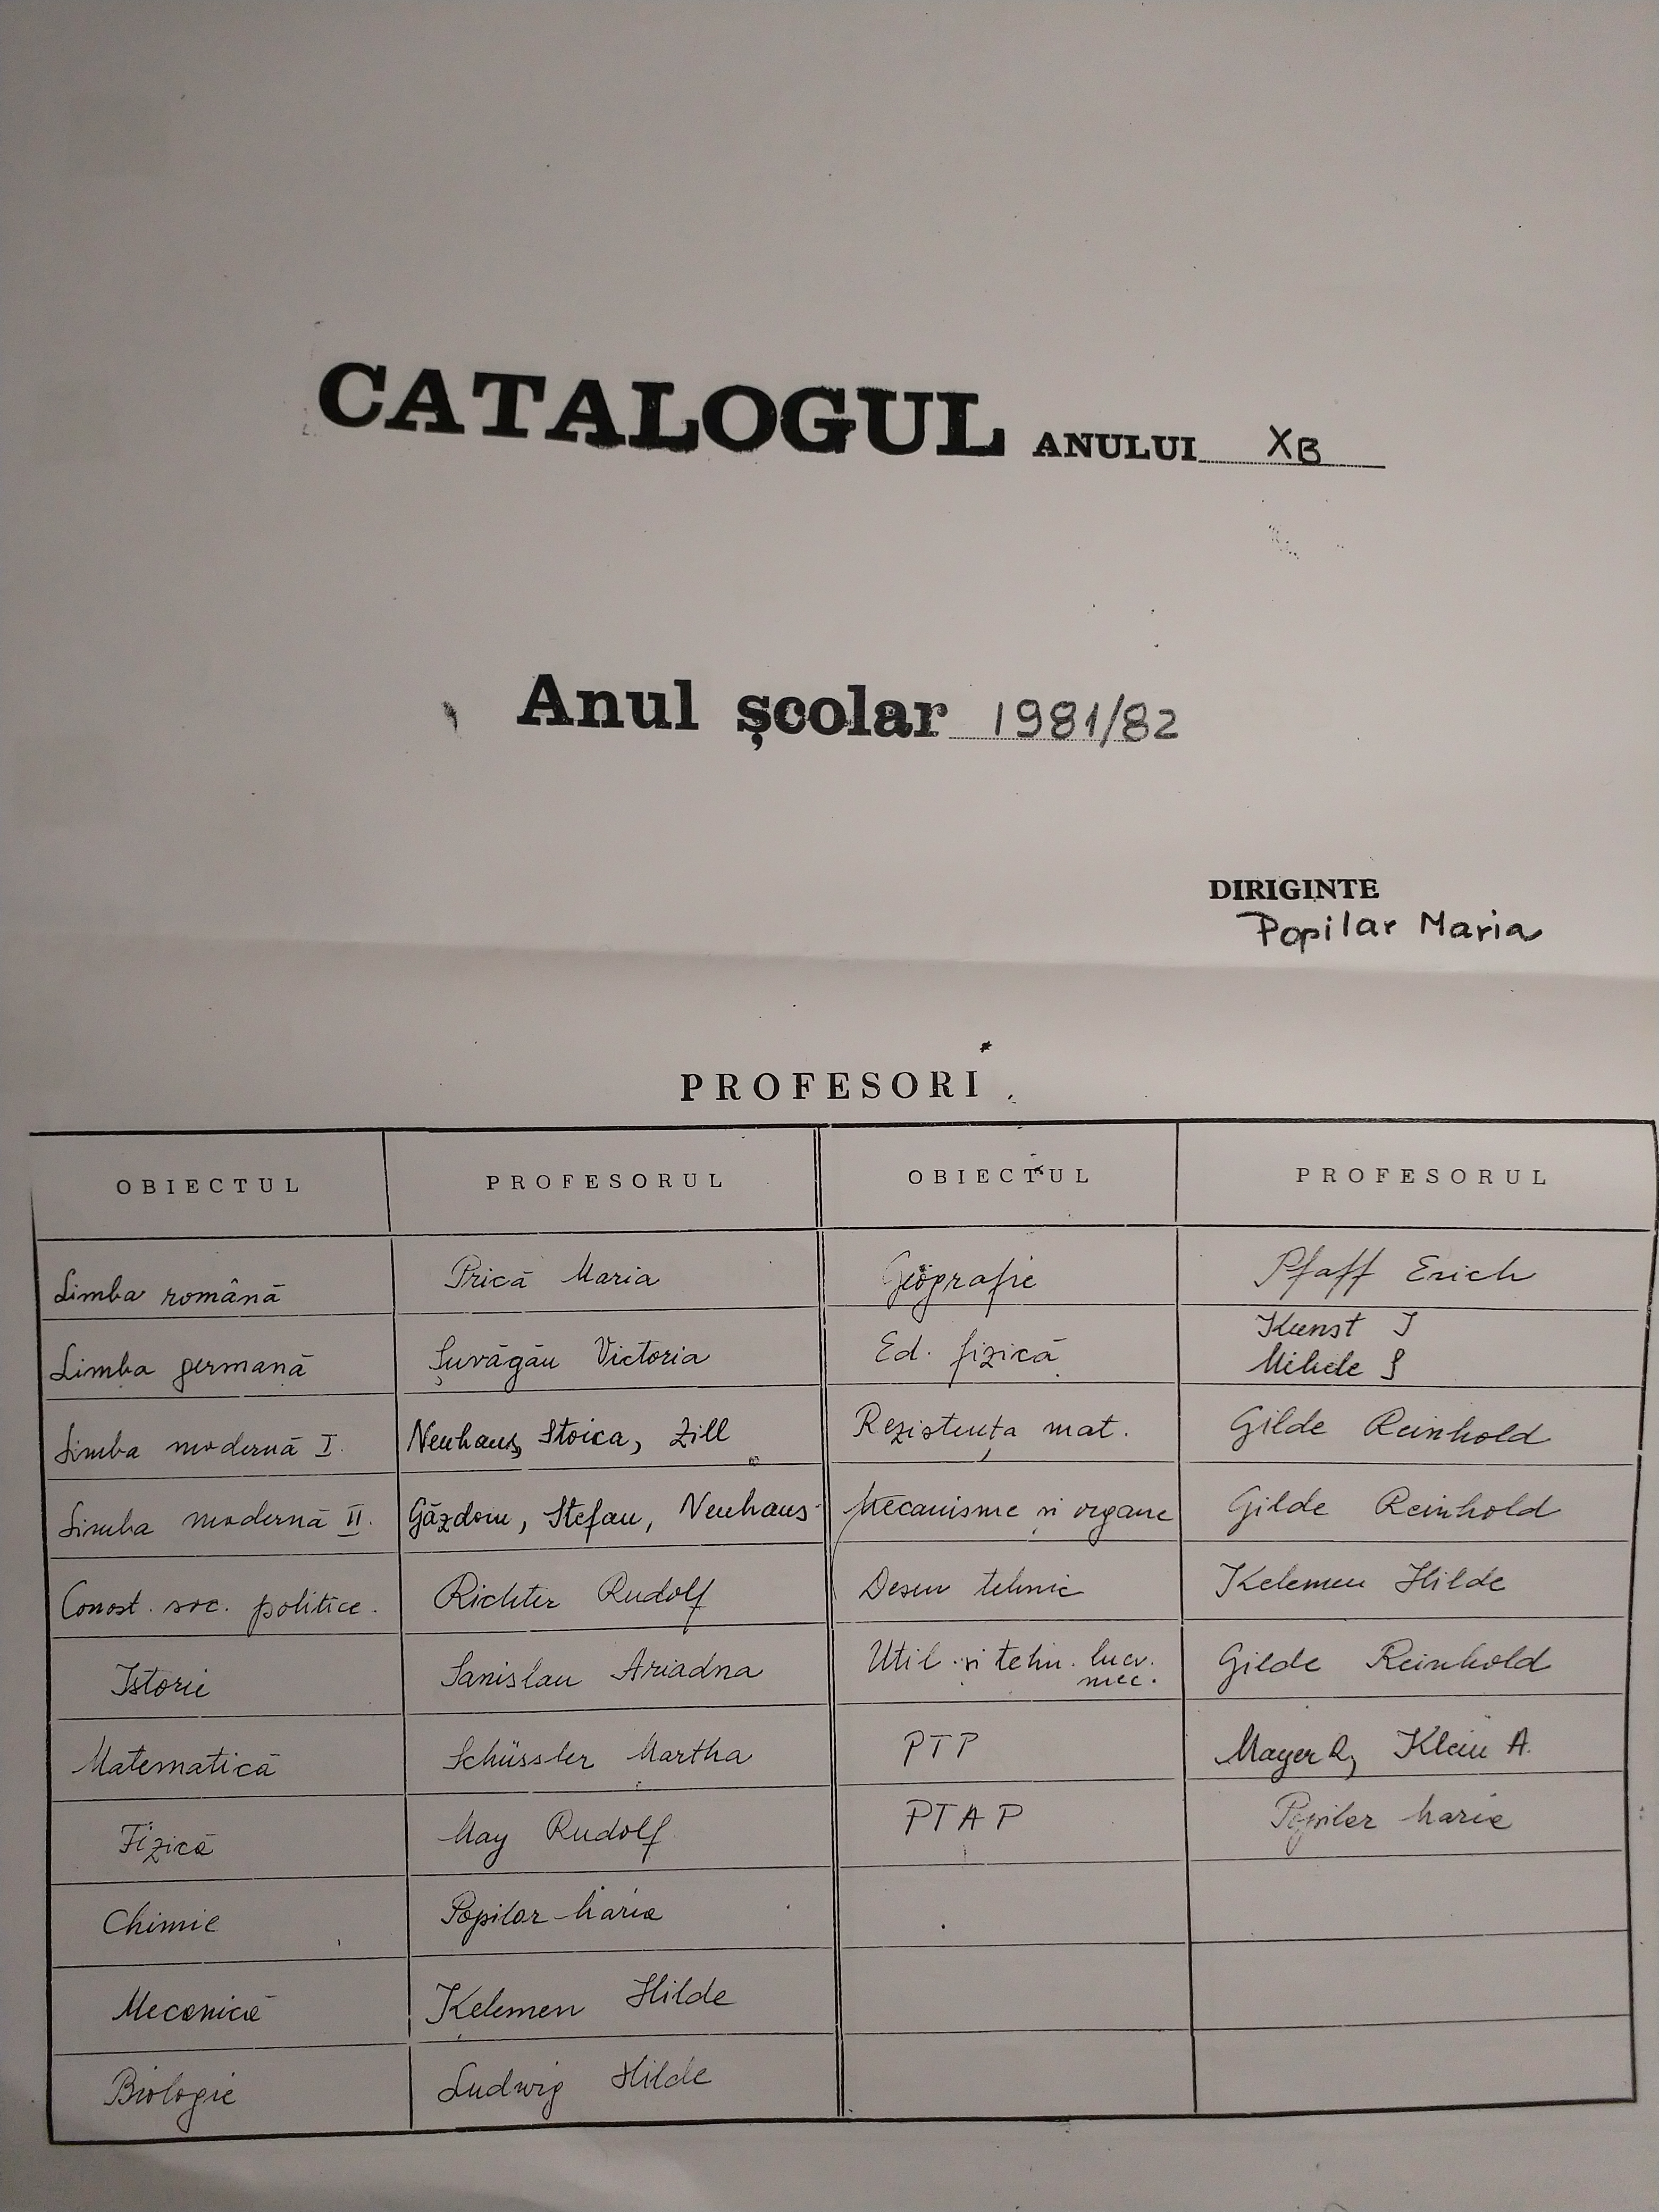 CATALOGUL ANULUI XB
Anul școlar 1981/82
DIRIGINTE
Popilar Maria
PROFESORI
OBIECTUL PROFESORUL OBIECTUL PROFESORUL
Limba română Prică Maria Geografie Pfaff Erich
Limba germană Șuvăgău Victoria Ed. fizică Kunst I
Mihele
Limba modernă I. Neuhaus, Stoica, Zill Rezistența mat. Gilde Reinhold
Limba modernă II. Găzdou, Stefan, Neuhaus Mecanisme și organe Gilde Reinhold
Conost. soc. politice. Richter Rudolf Desen tehnic Kelemen Hilde
Istorie Sanislau Ariadna Util. și tehn. lucr. mec. Gilde Reinhold
Matematică Schüssler Martha PTP Mayer R, Klein A.
Fizică May Rudolf PTAP Popilar Maria
Chimie Popilar Maria
Mecanică Kelemen Hilde
Biologie Ludwig Hilde